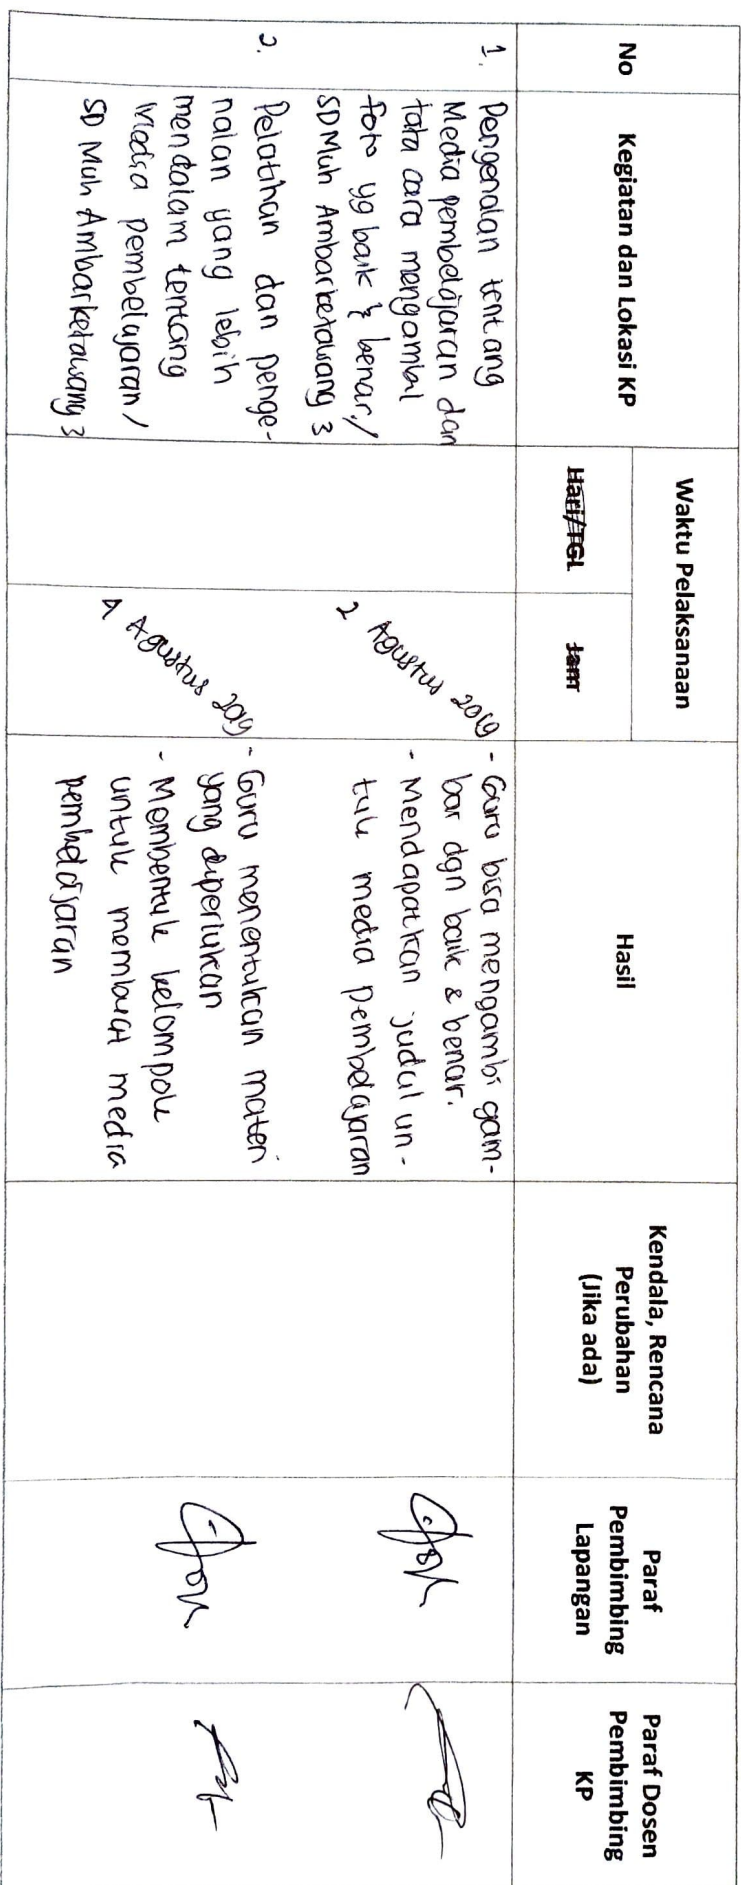 No
Kegiatan dan Lokasi KP
Waktu Pelaksanaan
Hari/TGL
Jam
Hasil
Kendala, Rencana
Perubahan
(Jika ada)
Paraf
Pembimbing
Lapangan
Paraf Dosen
Pembimbing
KP
1.
Pengenalan tentang
Media pembelajaran dan
tata cara mengambil
foto yg baik & benar. /
SD Muh Ambarketawang 3
2 Agustus 2019
- Guru bisa mengambi gam-
bar dgn baik & benar.
- Mendapatkan judul un-
tuk media pembelajaran
2.
Pelatihan dan penge-
nalan yang lebih
mendalam tentang
Media pembelajaran /
SD Muh Ambarketawang 3
Agustus 2019
- Guru menentukan materi
yang diperlukan
- Membentuk kelompok
untuk membuat media
pembelajaran